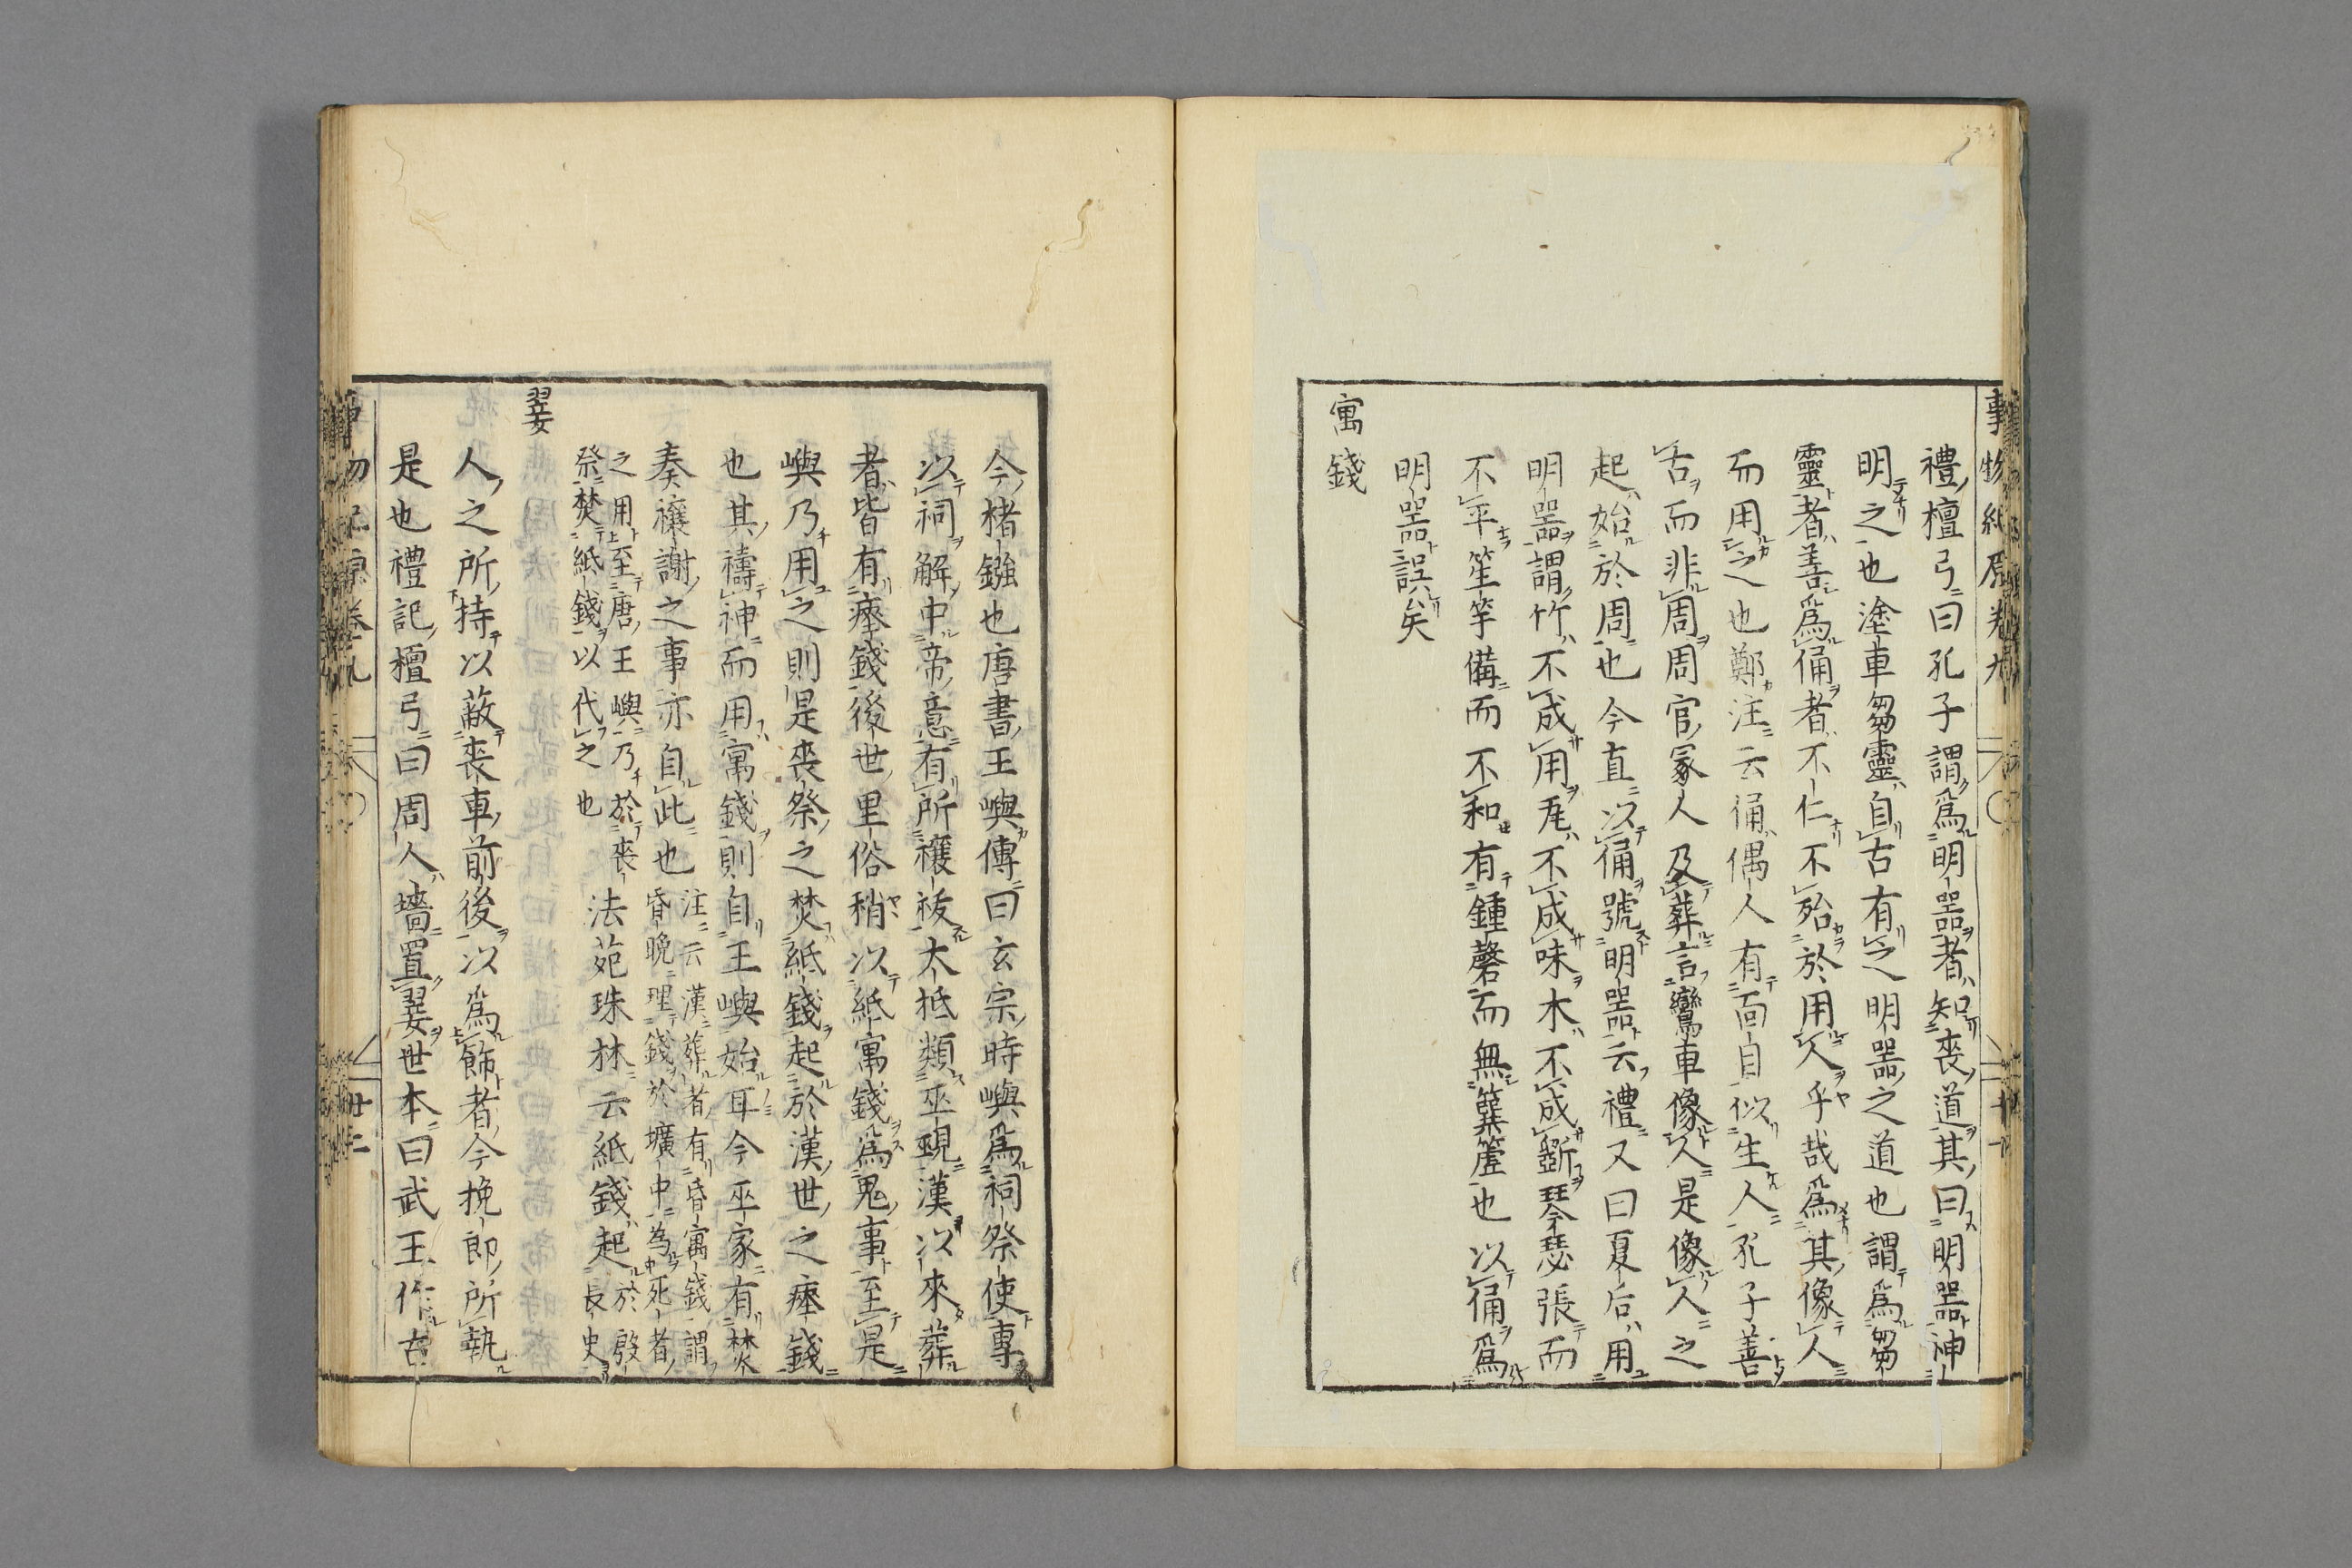 事物紀原卷九
禮檀弓曰孔子謂爲明器者知喪道其曰明器神
明之也塗車芻靈自古有之明器之道也謂爲芻
靈者善爲俑者不仁不殆於用人乎哉爲其像人
而用之也鄭注云俑偶人有面目似生人孔子善
古而非周周官冢人及葬言鸞車像人是像人之
起始於周也今直以俑號明器云禮又曰夏后用
明器謂竹不成用瓦不成味木不成斵琴瑟張而
不平笙竽備而不和有鍾磬而無簨簴也以俑爲
明器誤矣
寓錢
今楮鏹也唐書王嶼傳曰玄宗時嶼爲祠祭使專
以祠解中帝意有所禳祓大抵類巫覡漢以來葬
者皆有瘞錢後世里俗稍以紙寓錢爲鬼事至是
嶼乃用之則是喪祭之焚紙錢起於漢世之瘞錢
也其禱神而用寓錢則自王嶼始耳今巫家有焚
奏禳謝之事亦自此也
注云漢葬者有昏寓錢謂
昏晚埋錢於壙中為死者
之用至唐王嶼乃於喪
祭焚紙錢以代之也
法苑珠林云紙錢起
於殷
長史
翣
人之所持以蔽喪車前後以爲飾者今挽郎所執
是也禮記檀弓曰周人墻置翣世本曰武王作古
卷九
廿二